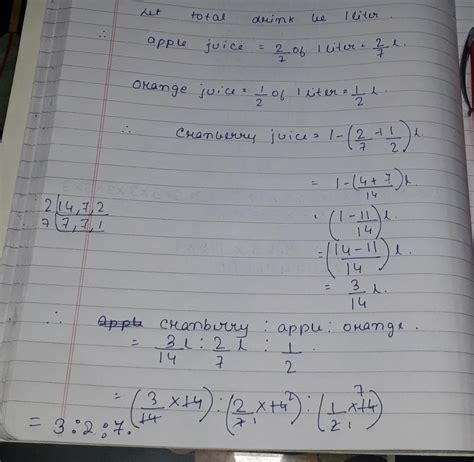 Let total drink be 1 liter.
∴ apple juice = 2/7 of 1 liter = 2/7 l.
orange juice = 1/2 of 1 liter = 1/2 l.
∴ cranberry juice = 1-(2/7 + 1/2) l
= 1-(4+7/14) l.
(1-11/14) l.
= (14-11/14) l.
= 3/14 l.
2 | 14, 7, 2
7 | 7, 7, 1
∴ cranberry : apple : orange.
= 3/14 l : 2/7 l : 1/2.
= (3/14 × 14) : (2/7 1 × 14 2) : (1/2 1 × 14 7)
= 3:2:7.